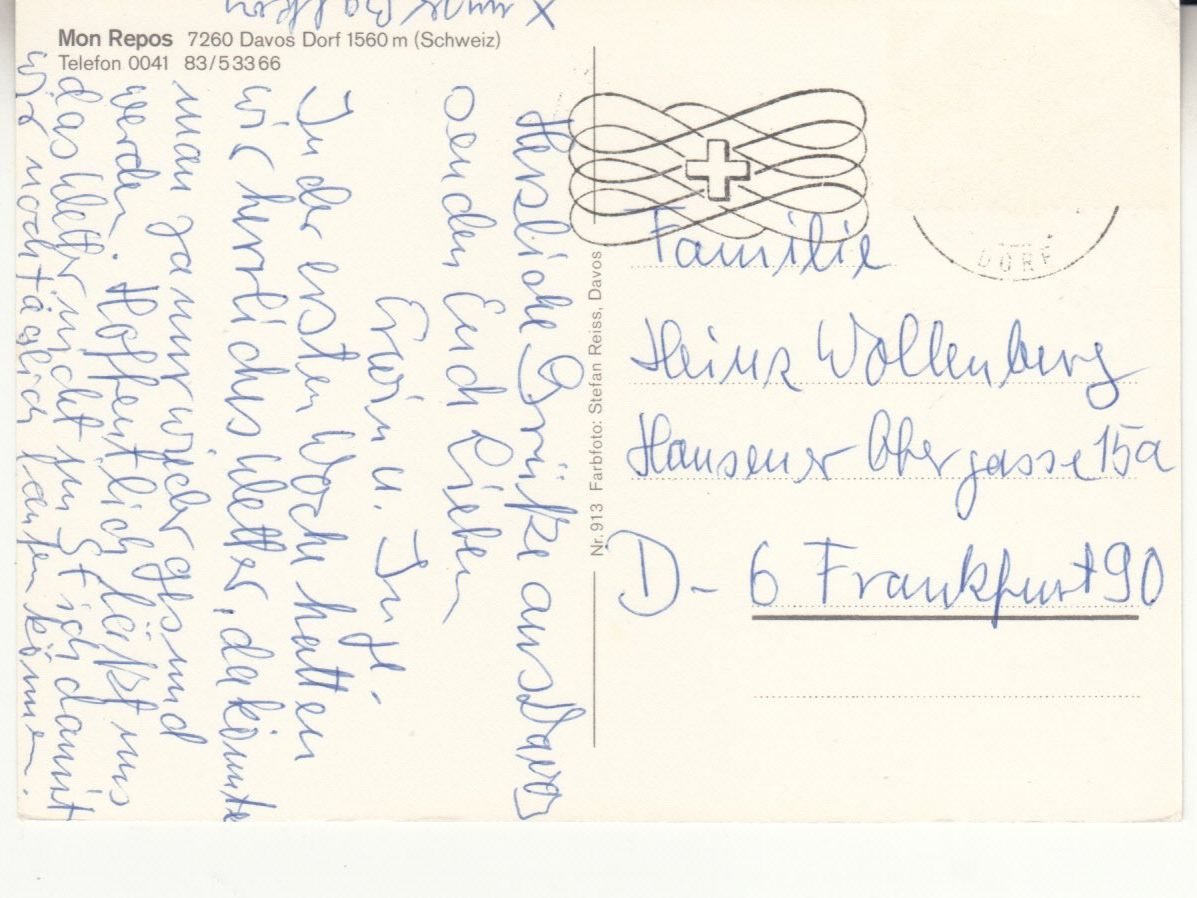 x unser Balkon
Mon Repos 7260 Davos Dorf 1560 m (Schweiz)
Telefon 0041 83/5 33 66
Herzliche Grüße aus Davos
senden Euch Lieben
Erwin u. Inge.
In der ersten Woche hatten
wir herrliches Wetter, da könnte
man ganz wieder gesund
werden. Hoffentlich läßt uns
das Wetter nicht im Stich damit
wir noch täglich laufen können.
Nr. 913 Farbfoto: Stefan Reiss, Davos
DORF
Familie
Heinz Wollenberg
Hausener Obergasse 15a
D - 6 Frankfurt 90